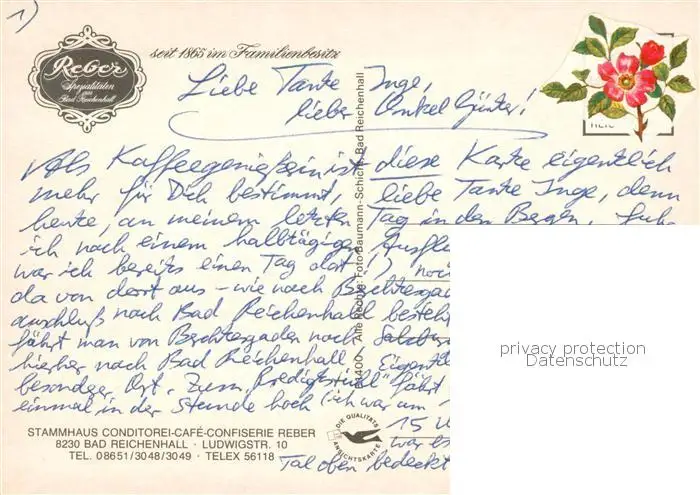 1)
seit 1865 im Familienbesitz
Reber
Spezialitäten
aus
Bad Reichenhall
Liebe Tante Inge,
lieber Onkel Günter!
Als Kaffeegenießerin ist diese Karte eigentlich
mehr für Dich bestimmt, liebe Tante Inge, denn
heute, an meinem letzten Tag in den Bergen, fuhr
ich nach einem halbtägigen Ausflu
war ich bereits einen Tag dort!) noc
da von dort aus - wie nach Berchtesgad
anschluß nach Bad Reichenhall besteh
fährt man von Berchtesgaden nach Salzbur
hierher nach Bad Reichenhall. Eigentli
besonderer Ort. Zum "Predigtstuhl" fährt
einmal in der Stunde hoch (ich war um
15 U
war es
Tal oben bedeckt
Alle Rechte: Foto Baumann-Schicht, Bad Reichenhall
DIE QUALITÄTS
ANSICHTSKARTE
STAMMHAUS CONDITOREI-CAFÉ-CONFISERIE REBER
8230 BAD REICHENHALL · LUDWIGSTR. 10
TEL. 08651/3048/3049 · TELEX 56118
privacy protection
Datenschutz